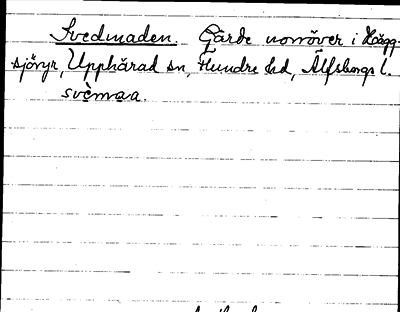 Svedmaden. Gärde norröver i Hägg-
sjöryr, Upphärad sn, Flundre hd, Älfsborgs l.
svèmaa.